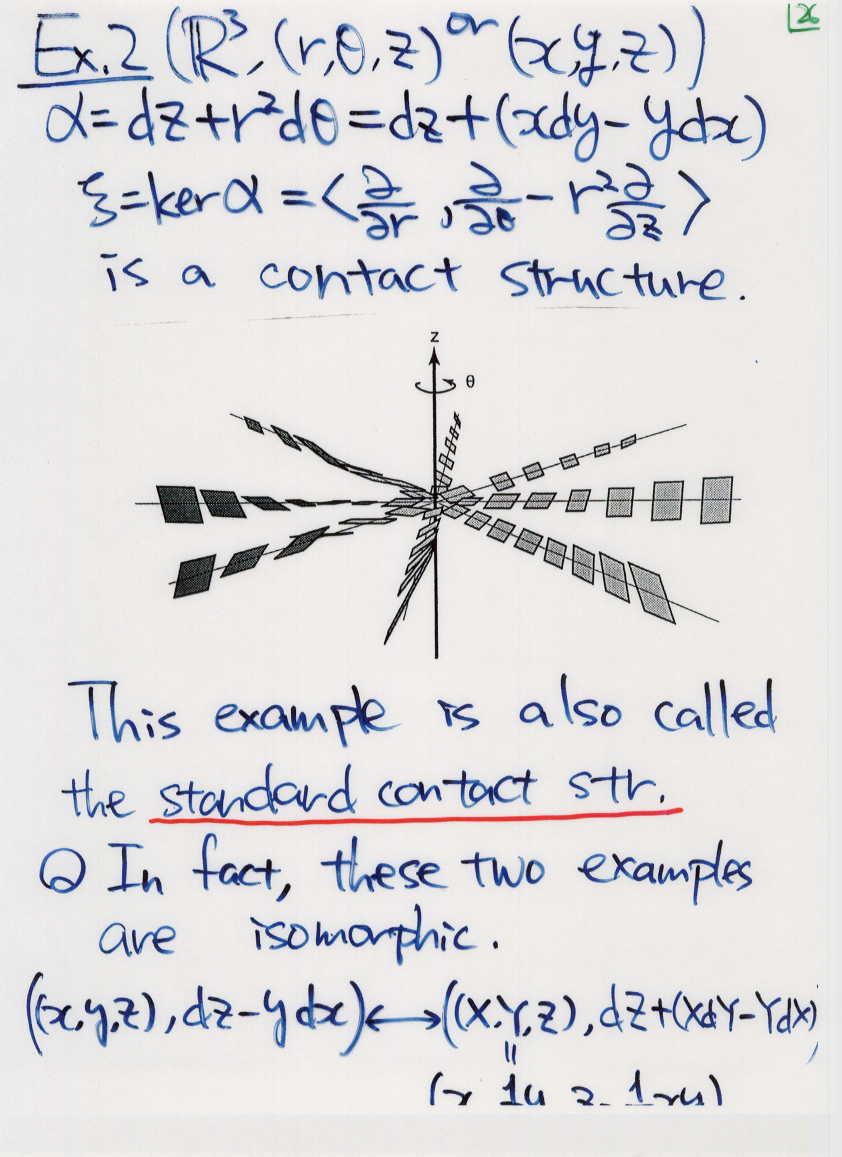 26
Ex.2 (ℝ³, (r,θ,z) or (x,y,z))
α=dz+r²dθ=dz+(xdy-ydx)
ξ=kerα=<∂/∂r, ∂/∂θ - r²∂/∂z>
is a contact structure.
z
θ
This example is also called
the standard contact str.
Q In fact, these two examples
are isomorphic.
((x,y,z), dz-ydx)↔((X,Y,Z), dZ+(XdY-YdX))
||